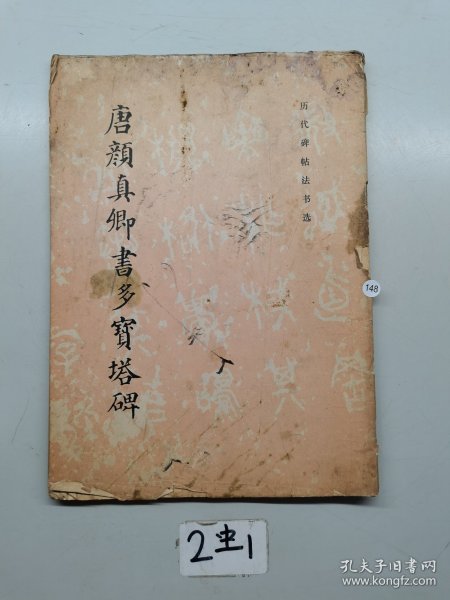 历代碑帖法书选
唐顔真卿書多寳塔碑
148
2虫1
孔夫子旧书网
www.kongfz.com